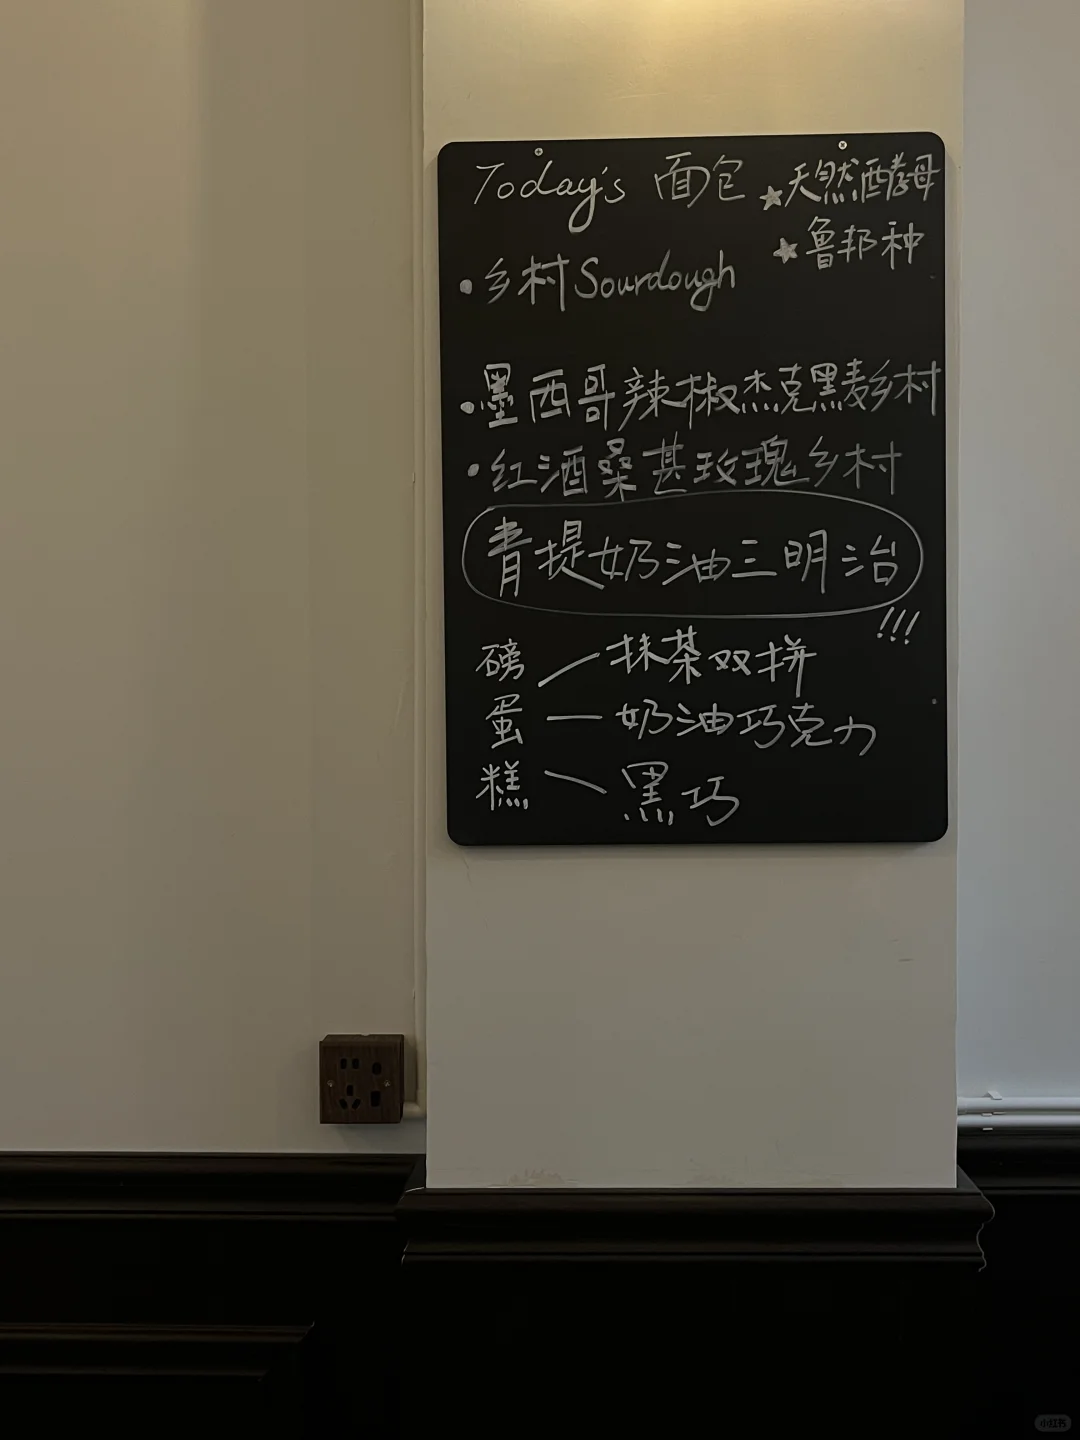 Today's 面包
★天然酵母
★鲁邦种
•乡村Sourdough
•墨西哥辣椒杰克黑麦乡村
•红酒桑甚玫瑰乡村
青提奶油三明治
!!!
磅蛋糕
抹茶双拼
奶油巧克力
黑巧
小红书